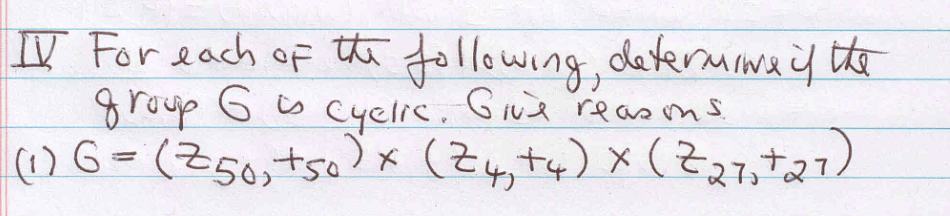 IV For each of the following, determine if the
group G is cyclic. Give reasons
(1) G = (Z₅₀, +₅₀) × (Z₄, +₄) × (Z₂₇, +₂₇)